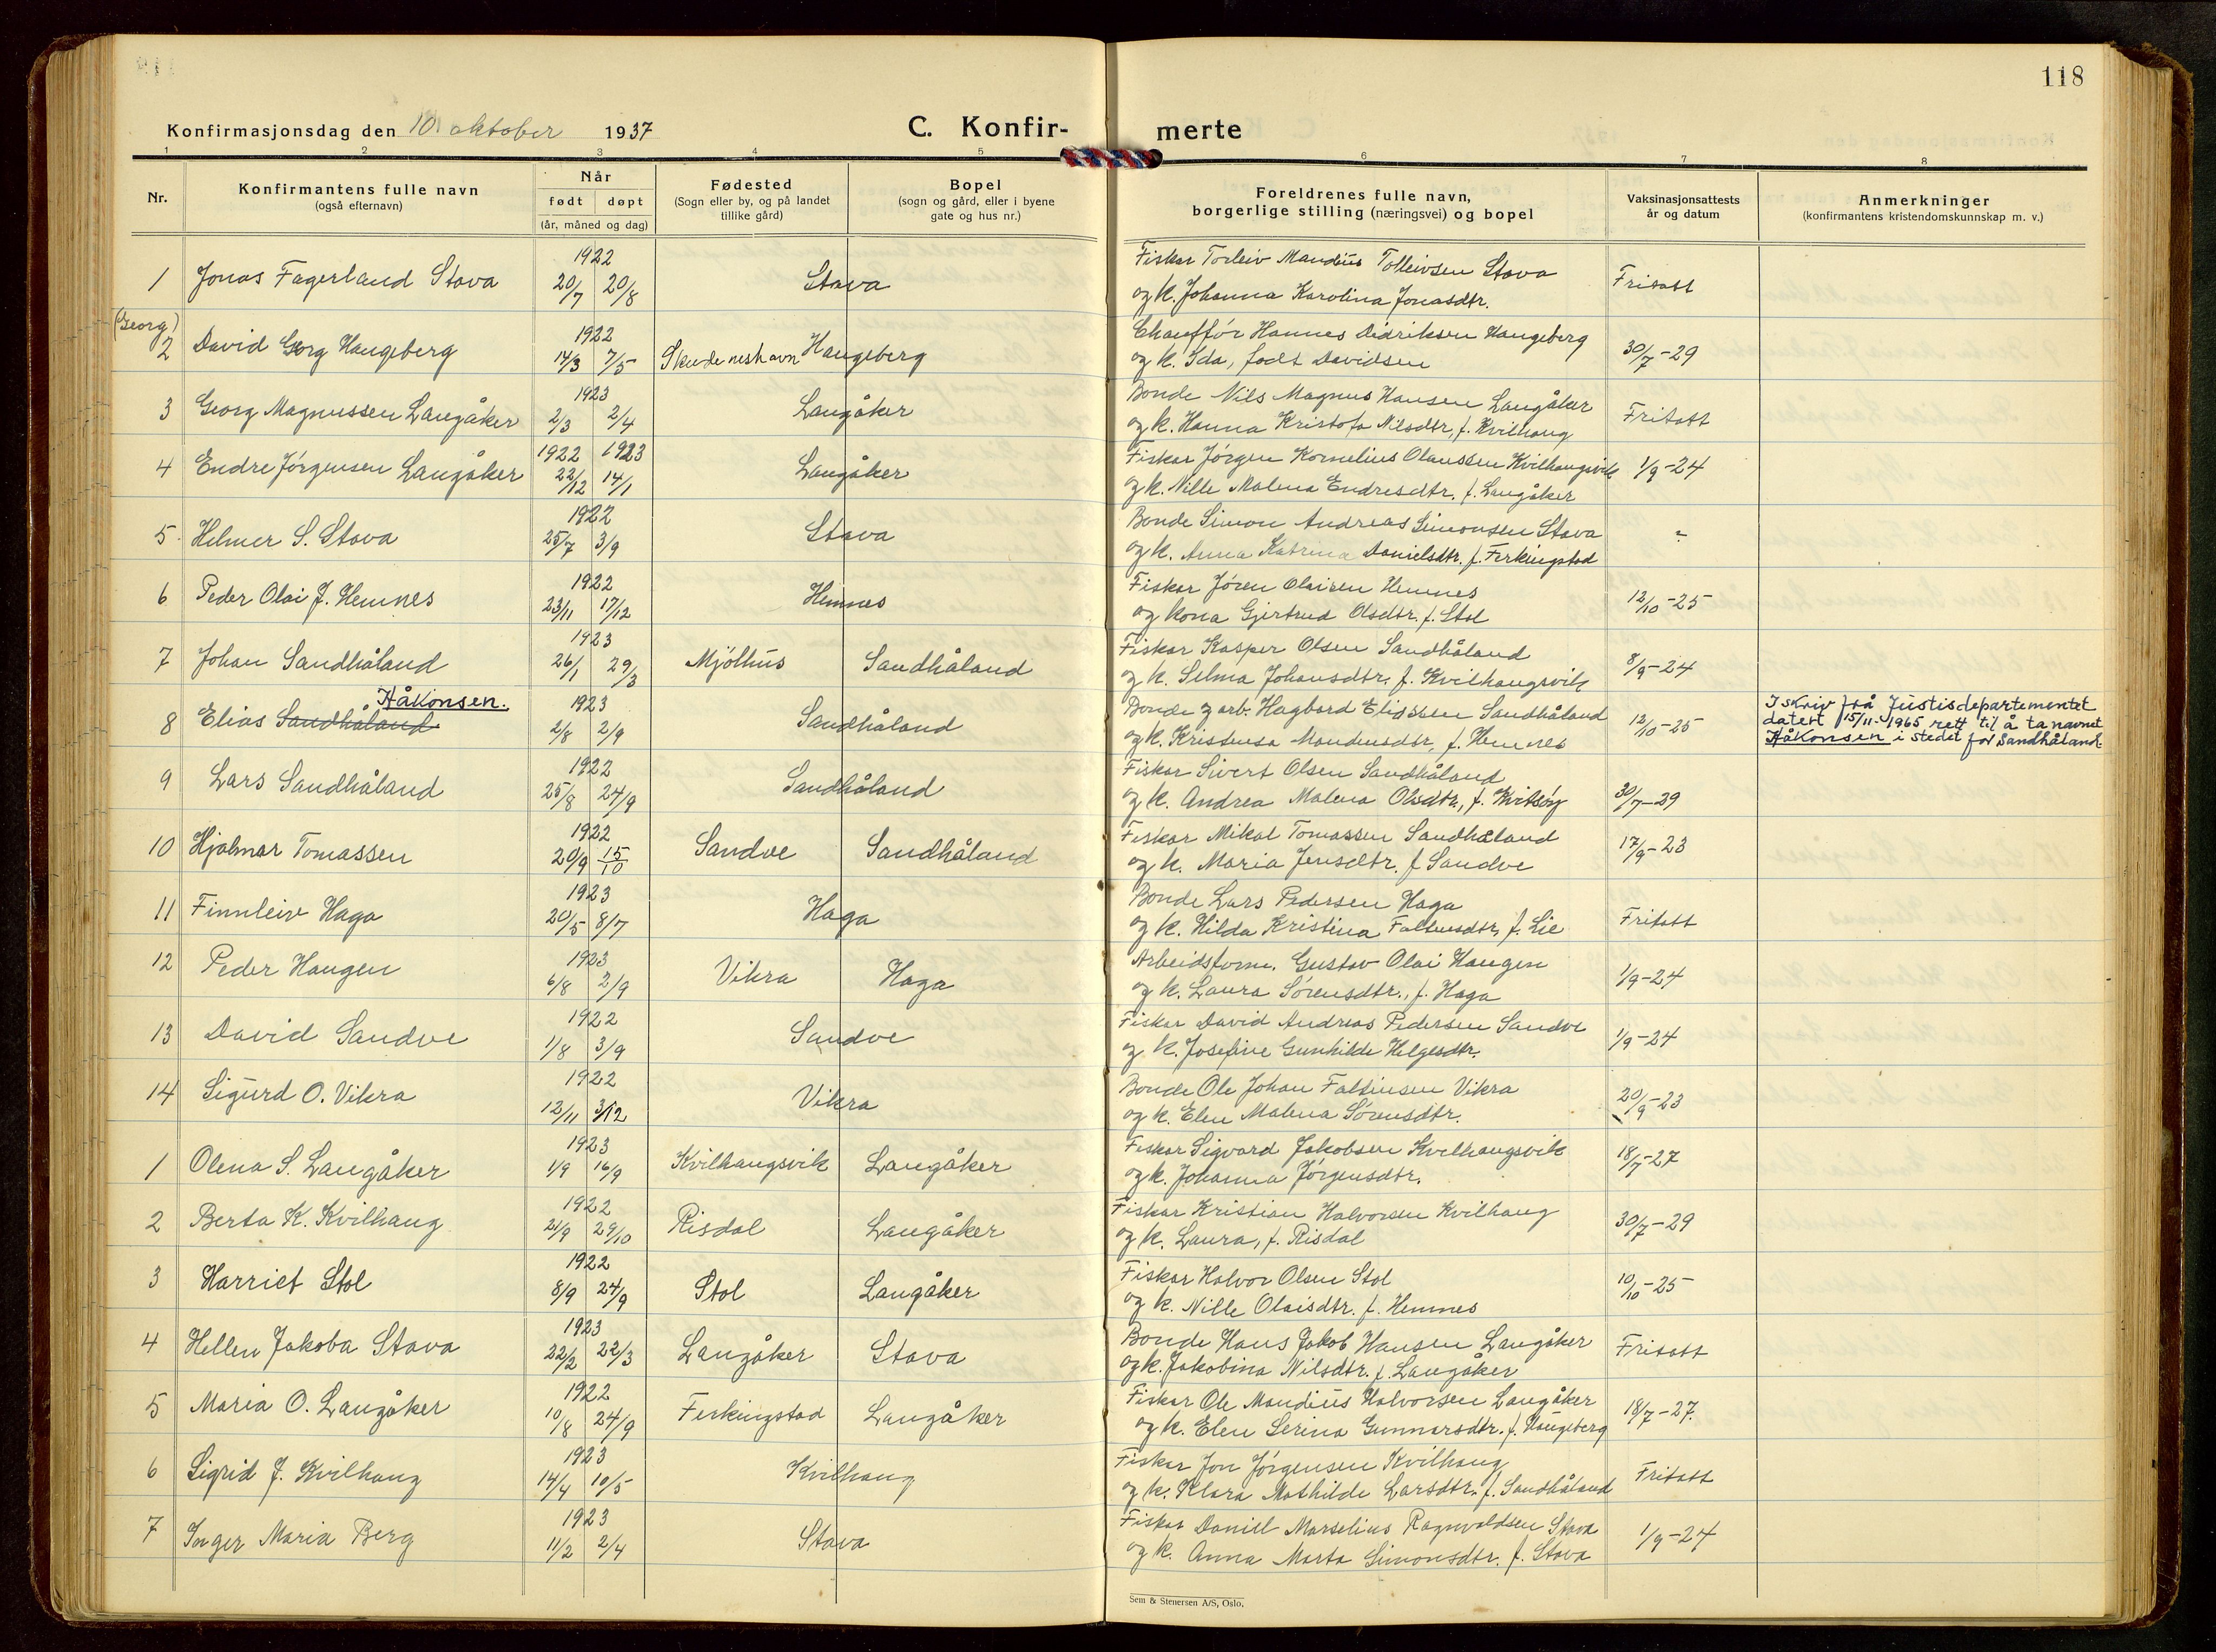 118
Konfirmasjonsdag den 10 oktober 1937
C. Konfir- merte
1 2 3 4 5 6 7 8
Nr.
Konfirmantens fulle navn
(også efternavn)
Når
født døpt
(år, måned og dag)
Fødested
(Sogn eller by, og på landet
tillike gård)
Bopel
(sogn og gård, eller i byene
gate og hus nr.)
Foreldrenes fulle navn,
borgerlige stilling (næringsvei) og bopel
Vaksinasjonsattests
år og datum
Anmerkninger
(konfirmantens kristendomskunnskap m. v.)
1 Jonas Fagerland Stava 1922 20/7 20/8 Stava Fiskar Torleiv Mandius Tolleivsen Stava
og k. Johanna Karolina Jonasdtr. Fritatt
(Georg)
2 David Georg Haugeberg 1922 14/3 7/5 Skudeneshavn Haugeberg Chauffør Hannes Didriksen Haugeberg
og k. Ida, født Davidsen 30/7-29
3 Georg Magnussen Langåker 1923 2/3 2/4 Langåker Bonde Nils Magnus Hansen Langåker
og k. Hanna Kristofa Nilsdtr, f. Kvilhaug Fritatt
4 Endre Jørgensen Langåker 1922 1923 22/12 14/1 Langåker Fiskar Jørgen Kornelius Olaussen Kvilhaugsvik
og k. Nille Malena Endresdtr. f. Langåker 1/9-24
5 Helmer S. Stava 1922 25/7 3/9 Stava Bonde Simon Andreas Simonsen Stava
og k. Anna Katrina Danielsdtr. f. Ferkingstad
6 Peder Olai J. Hemnes 1922 23/11 17/12 Hemnes Fiskar Jøren Olaisen Hemnes
og kona Gjertrud Olsdtr. f. Stol 12/10-25
7 Johan Sandhåland 1923 26/1 29/3 Mjølhus Sandhåland Fiskar Kasper Olsen Sandhåland
og k. Selma Johansdtr. f. Kvilhaugsvik 8/9-24
Håkonsen.
8 Elias Sandhåland 1923 2/8 2/9 Sandhåland Bonde z arb. Hagbard Eliassen Sandhåland
og k. Kristensa Mandiusdtr, f. Hemnes 12/10-25
I skriv frå Justisdepartementet
datert 15/11-1965 rett til å ta navnet
Håkonsen i stedet for Sandhåland.
9 Lars Sandhåland 1922 25/8 24/9 Sandhåland Fiskar Sivert Olsen Sandhåland
og k. Andrea Malena Olsdtr., f. Kvitsøy 30/7-29
10 Hjalmar Tomassen 1922 20/9 15/10 Sandve Sandhåland Fiskar Mikal Tomassen Sandhåland
og k. Maria Jensdtr. f Sandve 17/9-23
11 Finnleiv Haga 1923 20/5 8/7 Haga Bonde Lars Pedersen Haga
og k. Hilda Kristina Faltensdtr, f. Lie Fritatt
12 Peder Haugen 1923 6/8 2/9 Vikra Haga Arbeidsform. Gustav Olai Haugen
og k. Laura Sørensdtr., f. Haga 1/9-24
13 David Sandve 1922 1/8 3/9 Sandve Fiskar David Andreas Pedersen Sandve
og k. Josefine Gunhilde Helgesdtr. 1/9-24
14 Sigurd O. Vikra 1922 12/11 3/12 Vikra Bonde Ole Johan Faltinsen Vikra
og k. Elen Malena Sørensdtr. 20/9-23
1 Olena S. Langåker 1923 1/9 16/9 Kvilhaugsvik Langåker Fiskar Sigvard Jakobsen Kvilhaugsvik
og k. Johanna Jørgensdtr. 18/7-27
2 Berta K. Kvilhaug 1922 21/9 29/10 Risdal Langåker Fiskar Kristian Halvorsen Kvilhaug
og k. Laura, f. Risdal 30/7-29
3 Harriet Stol 1922 8/9 24/9 Stol Langåker Fiskar Halvor Olsen Stol
og k. Nille Olaisdtr. f. Hemnes 10/10-25
4 Hellen Jakoba Stava 1923 22/2 22/3 Langåker Stava Bonde Hans Jakob Hansen Langåker
og k. Jakobina Nilsdtr. f. Langåker Fritatt
5 Maria O. Langåker 1922 10/8 24/9 Ferkingstad Langåker Fiskar Ole Mandius Halvorsen Langåker
og k. Elen Serina Gunnarsdtr. f. Haugeberg 18/7-27.
6 Sigrid J. Kvilhaug 1923 14/4 10/5 Kvilhaug Fiskar Jon Jørgensen Kvilhaug
og k. Klara Mathilde Larsdtr. f. Sandhåland Fritatt
7 Inger Maria Berg 1923 11/2 2/4 Stava Fiskar Daniel Marselius Ragnvaldsen Stava
og k. Anna Marta Simonsdtr. f. Stava 1/9-24
Sem & Stenersen A/S, Oslo.